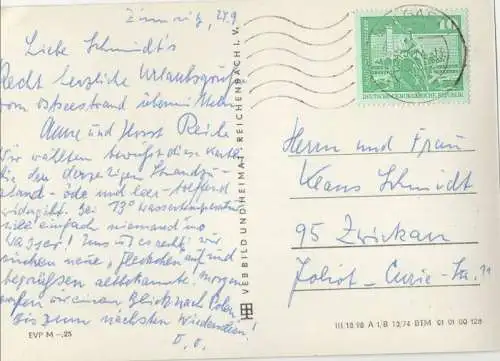 Zinnowitz, 24.9
Liebe Schmidt's
Recht herzliche Urlaubsgrüße
vom Ostseestrand übermitteln
Anne und Horst
Wir wählten bewußt diese Karte
die den derzeigen Strandzu-
stand - öde und leer - treffend
widergibt. Bei 13° Wassertemperatur
will einfach niemand ins
Wasser! Uns ist es recht: wir
suchen neue Fleckchen auf und
begrüßen altbekannte. Morgen
werfen wir einen Blick nach Polen.
Bis zum nächsten Wiedersehen!
D. O.
EVP M -,25
VEB BILD UND HEIMAT · REICHENBACH i. V.
10
DEUTSCHE DEMOKRATISCHE REPUBLIK
Herrn und Frau
Klaus Schmidt
95 Zwickau
Joliot-Curie-Str.
III 18 98 A 1/B 13/74 BTM 01 01 00 128